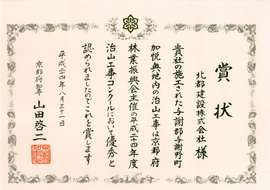 賞状
北都建設株式会社 様
貴社の施工された与謝郡与謝野町
加悦奥地内の治山工事は京都府
林業振興会主催の平成二十四年度
治山工事コンクールにおいて優秀と
認められましたのでこれを賞します
平成二十四年八月二十一日
京都府知事
山田啓二